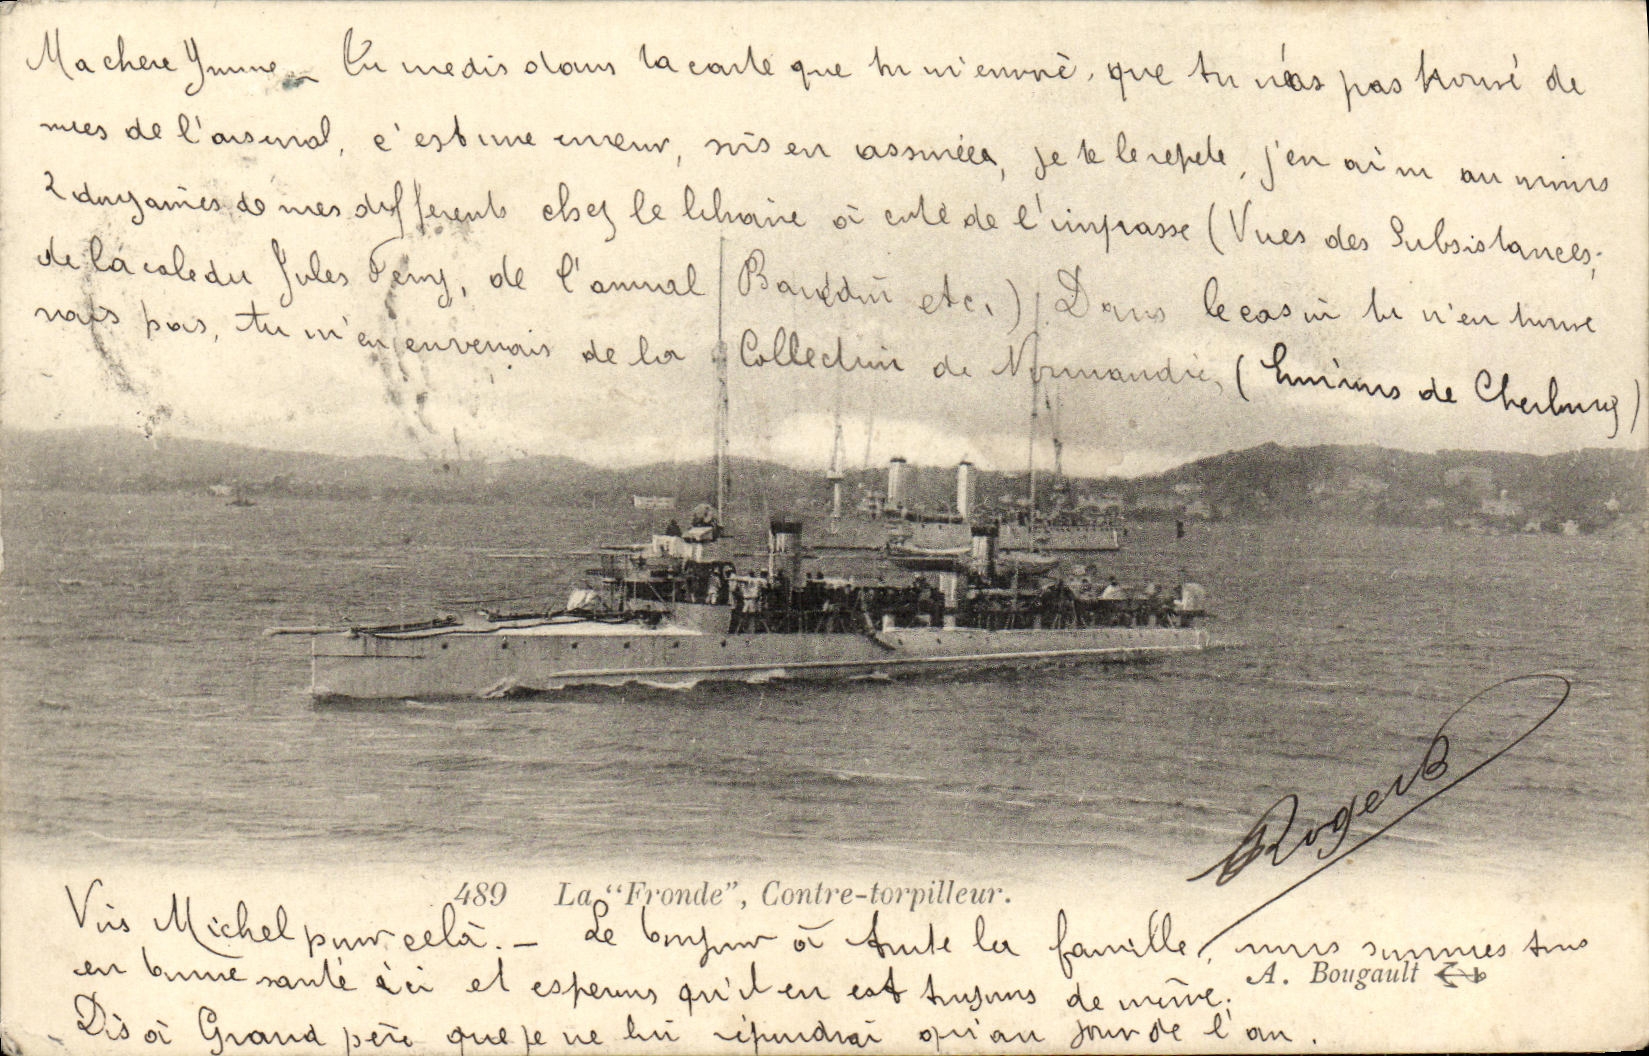 Ma chere Yvonne – Tu me dis dans la carte que tu m'envoiè, que tu n'as pas trouvé de
vues de l'arsenal, c'est une erreur, sois en assurée, je te le repete, j'en ai vu au moins
2 douzaines de vues differents chez le libraire à coté de l'impasse (Vues des Subsistances;
de la cale du Jules Ferry, de l'amiral Baudin etc.) Dans le cas où tu n'en trouve
rais pas, tu m'en envenais de la Collection de Normandie, (Environs de Cherbourg)
Rogers
489 La "Fronde", Contre-torpilleur.
Vois Michel pour celà. – Le bonjour à toute la famille, nous sommes tous
en bonne santé ici et esperons qu'il en est toujours de même.
A. Bougault
Dis à Grand père que je ne lui répondrai qu'au jour de l'an.